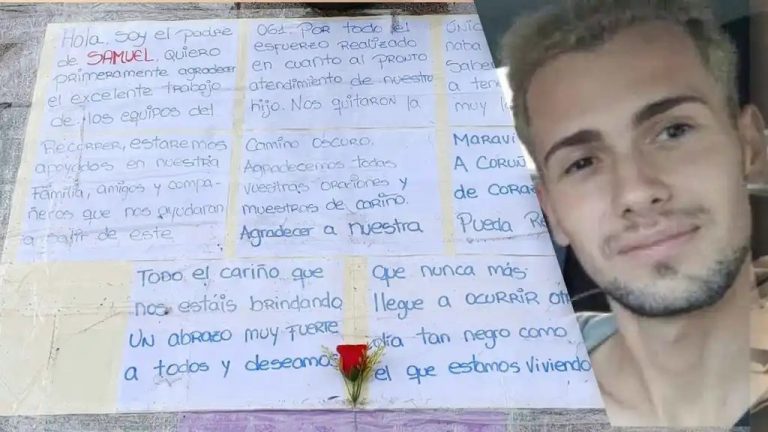 Hola, soy el padre
de SAMUEL, quiero
primeramente agradecer
el excelente trabajo
de los equipos del
061. Por todo el
esfuerzo realizado
en cuanto al pronto
atendimiento de nuestro
hijo. Nos quitaron la
naba
a ten
muy l
Recorrer, estaremos
apoyados en nuestra
Familia, amigos y compa-
ñeros que nos ayudaran
a salir de este
Camino oscuro.
Agradecemos todas
vuestras oraciones y
muestras de cariño.
Agradecer a nuestra
Maravi
A CORUÑ
de CORA
Pueda
Todo el cariño que
nos estáis brindando
un abrazo muy fuerte
a todos y deseamos
que nunca más
llegue a ocurrir
día tan negro como
el que estamos viviendo